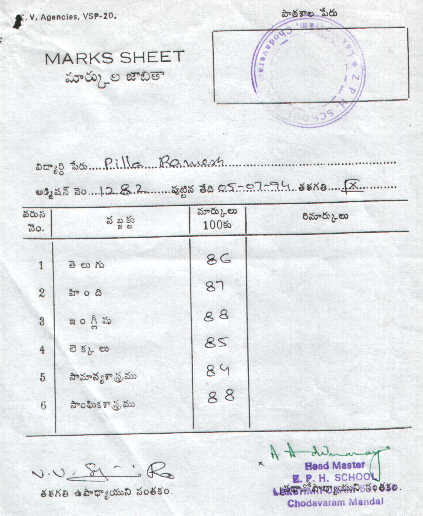 V. Agencies, VSP-20.
పాఠశాల పేరు
MARKS SHEET
మార్కుల జాబితా
Z. P. H. SCHOOL
విద్యార్థి పేరు Pilla Ramesh
అడ్మిషన్ నెం. 1282 పుట్టిన తేది 05-07-94 తరగతి IX
వరుస నెం. సబ్జక్టు మార్కులు 100కు రిమార్కులు
1 తెలుగు 86
2 హిందీ 87
3 ఇంగ్లీషు 88
4 లెక్కలు 85
5 సామాన్యశాస్త్రము 84
6 సాంఘికశాస్త్రము 88
తరగతి ఉపాధ్యాయుని సంతకం.
Head Master
Z. P. H. SCHOOL
సంతకం
Chodavaram Mandal